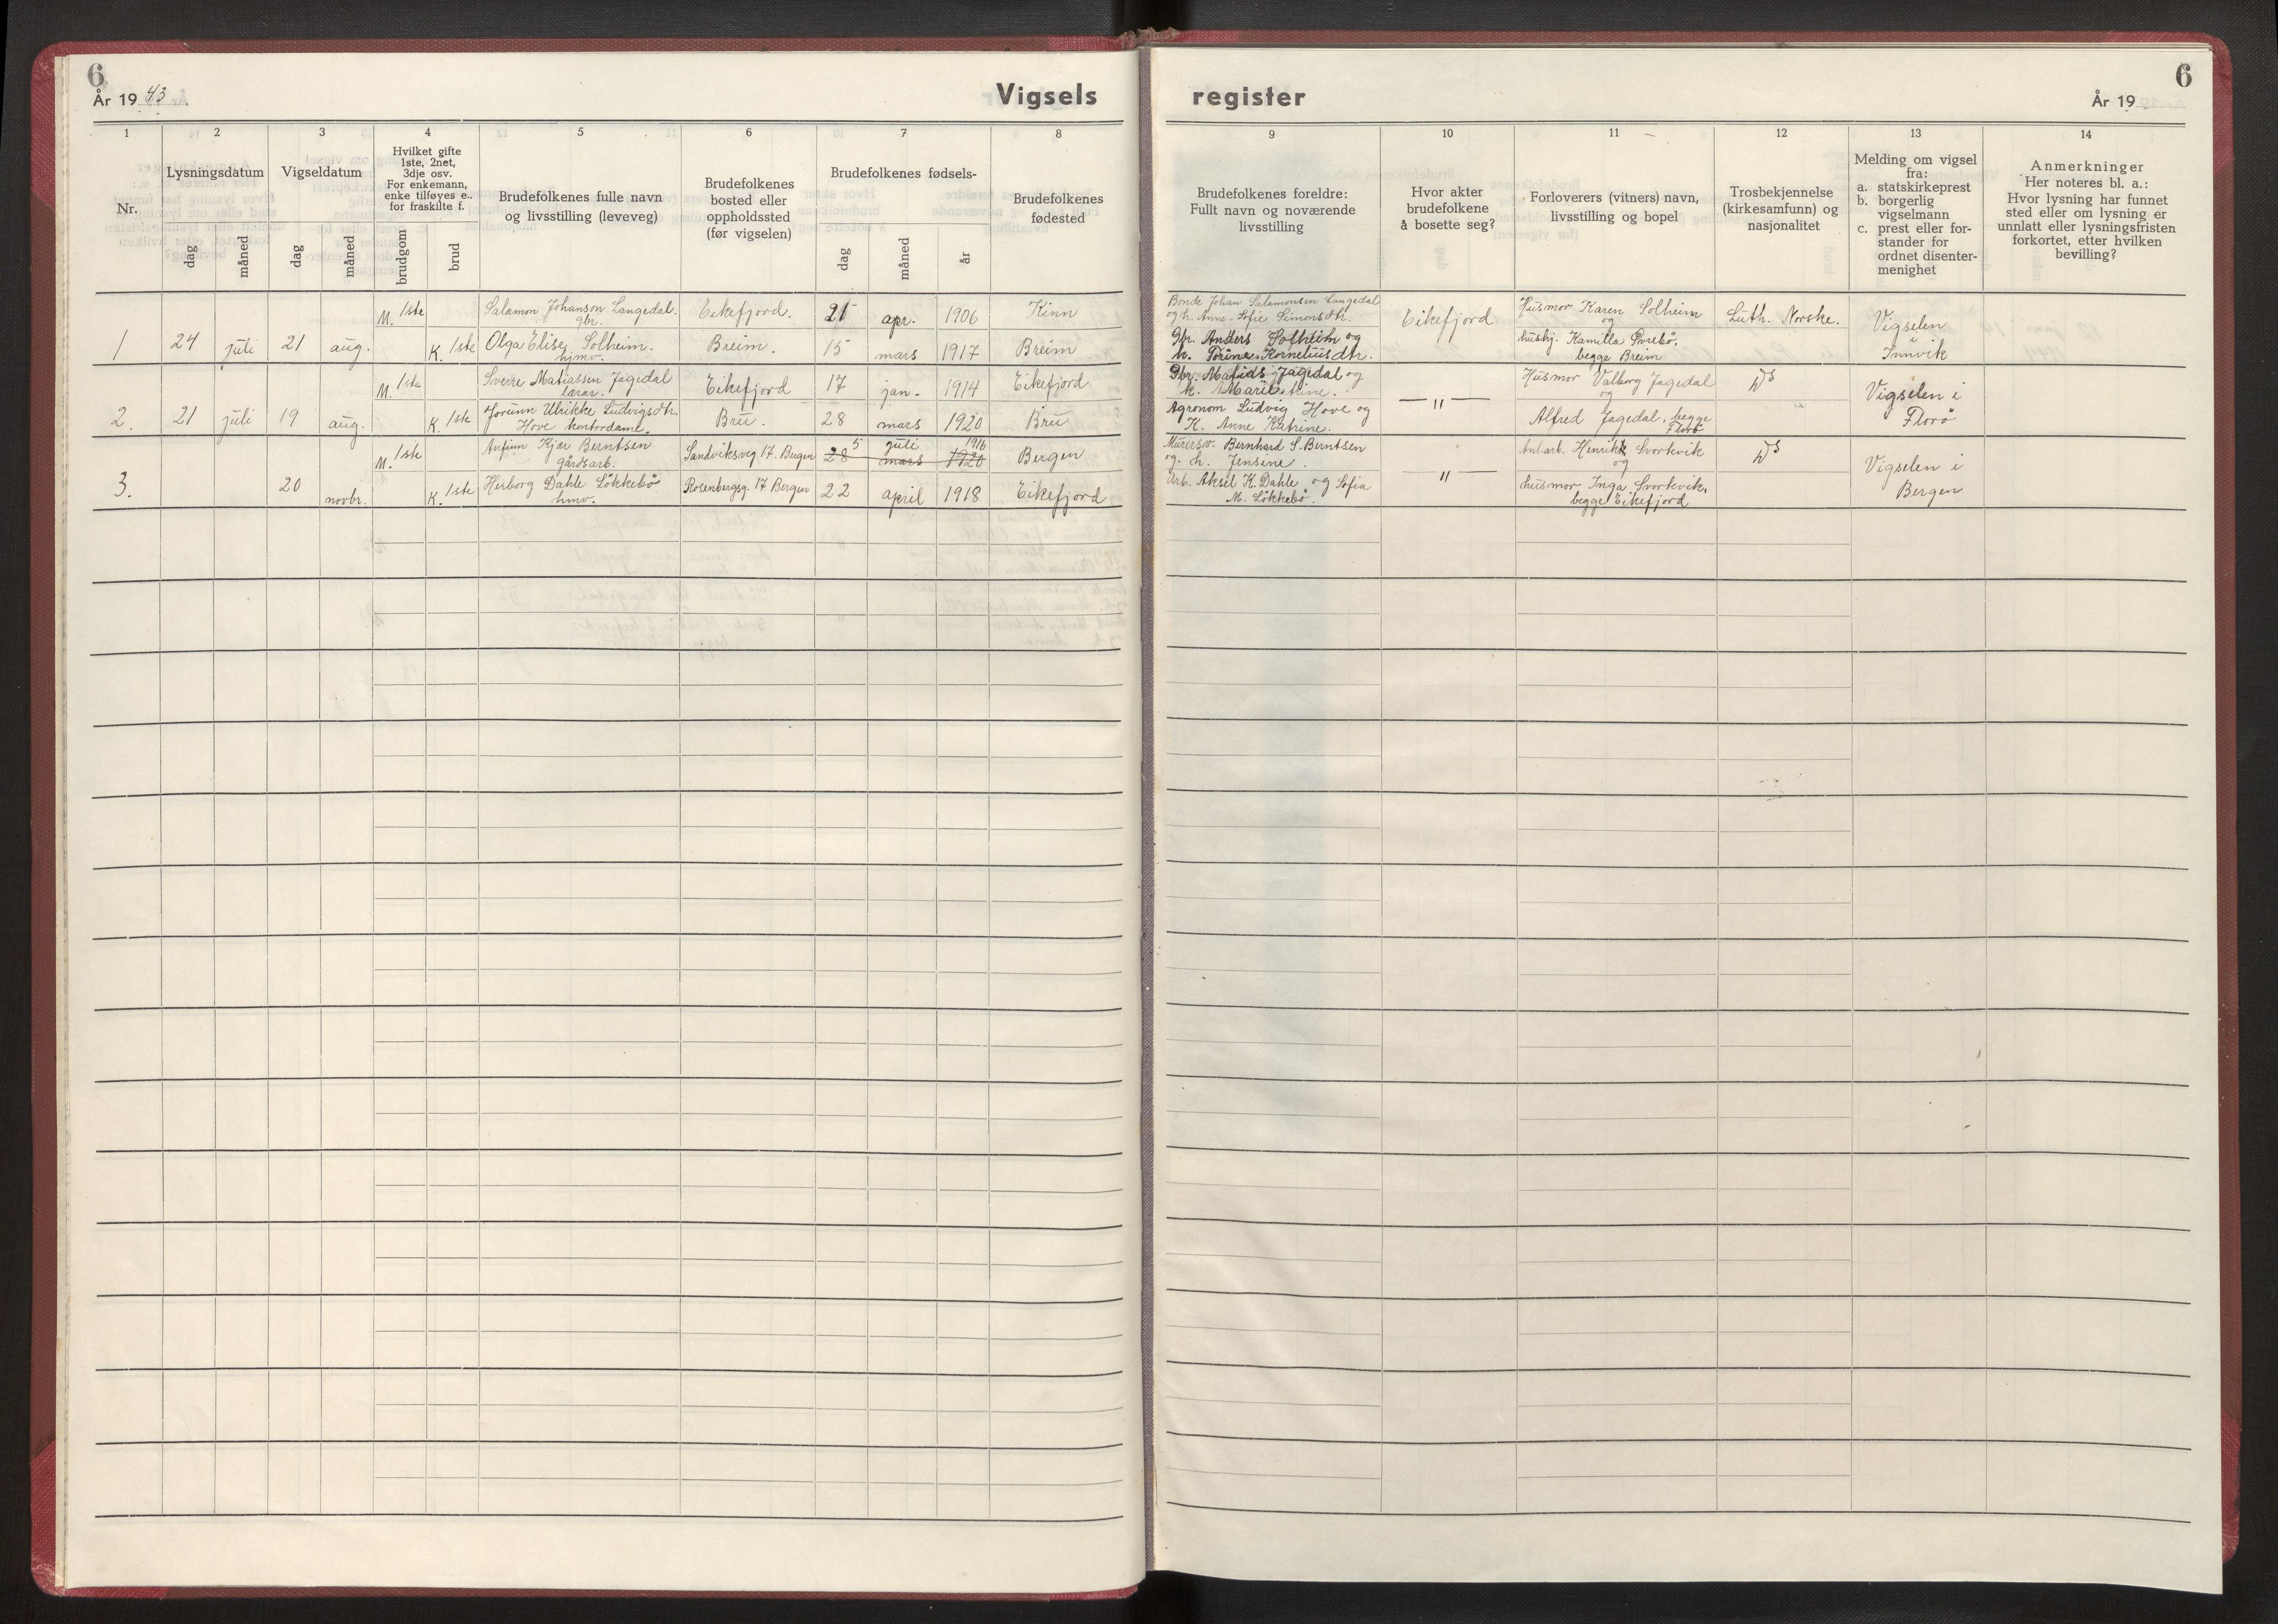 6
År 19 43
Vigsels
register
6
År 19
1 2 3 4 5 6 7 8
9 10 11 12 13 14
Nr.
Lysningsdatum
dag
måned
Vigseldatum
dag
måned
Hvilket gifte
1ste, 2net,
3dje osv.
For enkemann,
enke tilføyes e..
for fraskilte f.
brudgom
brud
Brudefolkenes fulle navn
og livsstilling (leveveg)
Brudefolkenes
bosted eller
oppholdssted
(før vigselen)
Brudefolkenes fødsels-
dag
måned
år
Brudefolkenes
fødested
Brudefolkenes foreldre:
Fullt navn og noværende
livsstilling
Hvor akter
brudefolkene
å bosette seg?
Forloverers (vitners) navn,
livsstilling og bopel
Trosbekjennelse
(kirkesamfunn) og
nasjonalitet
Melding om vigsel
fra:
a. statskirkeprest
b. borgerlig
vigselmann
c. prest eller for-
stander for
ordnet disenter-
menighet
Anmerkninger
Her noteres bl. a.:
Hvor lysning har funnet
sted eller om lysning er
unnlatt eller lysningsfristen
forkortet, etter hvilken
bevilling?
1 24 juli 21 aug.
M. 1ste
Salamon Johanson Langedal.
gbr.
Eikefjord. 21 apr. 1906 Kinn
K. 1ste
Olga Elise Solheim.
hjmv.
Breim. 15 mars 1917 Breim
Bonde Johan Salamonsen Langedal
og h. Anne-Sofie Simonsdtr.
Gbr. Anders Solheim og
h. Korneliusdtr.
Eikefjord
Husmor Karen Solheim
og
hushj. Kamilla
begge Breim
Luth. Norske.
Vigselen
i
Innvik
2. 21 juli 19 aug.
M. 1ste
Sverre Matiassen Jagedal
lærar.
Eikefjord 17 jan. 1914 Eikefjord
K. 1ste
Jorunn Ulrikke Ludvigsdtr.
Hove kontordame.
Bru. 28 mars 1920 Bru
Gbr. Matias Jagedal og
k.
Agronom Ludvig Hove og
K. Anne Katrine.
— " —
Husmor Valborg Jagedal
og
Alfred Jagedal, begge
Florø
Ds
Vigselen i
Florø
3. 20 novbr.
M. 1ste
Anfinn Kjær Berntsen
gårdsarb.
Sandviksveg 17. Bergen 28 5 mars juli 1920 1916 Bergen
K. 1ste
Herborg Dahle Løkkebø
hmv.
Rosenbergsg. 17 Bergen 22 april 1918 Eikefjord
Murersv. Bernhard S. Berntsen
og h. Jensine.
Arb. Aksel K. Dahle og Sofia
M. Løkkebø.
"
Anl.arb. Henrik Svortevik
og
husmor Inga Svortevik,
begge Eikefjord
Ds
Vigselen i
Bergen